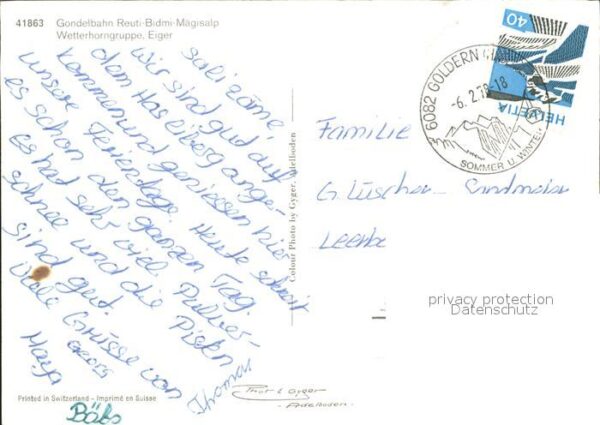 41863 Gondelbahn Reuti-Bidmi-Mägisalp
Wetterhorngruppe, Eiger
Sali zäme
Wir sind gut auf
dem Hasliberg ange-
kommen und geniessen hier
unsere Ferientage. Heute schneit
es schon den ganzen Tag.
es hat sehr viel Pulver-
schnee und die Pisten
sind gut.
Viele Grüsse von
Maya Thomas
Bäbs
Printed in Switzerland - Imprimé en Suisse
Colour Photo by Gyger, Adelboden
6082 GOLDERN
-6.2.78-18
SOMMER U. WINTER
40
HELVETIA
Familie
Glüscher-
Leerbe
privacy protection
Datenschutz
Gyger
Adelboden